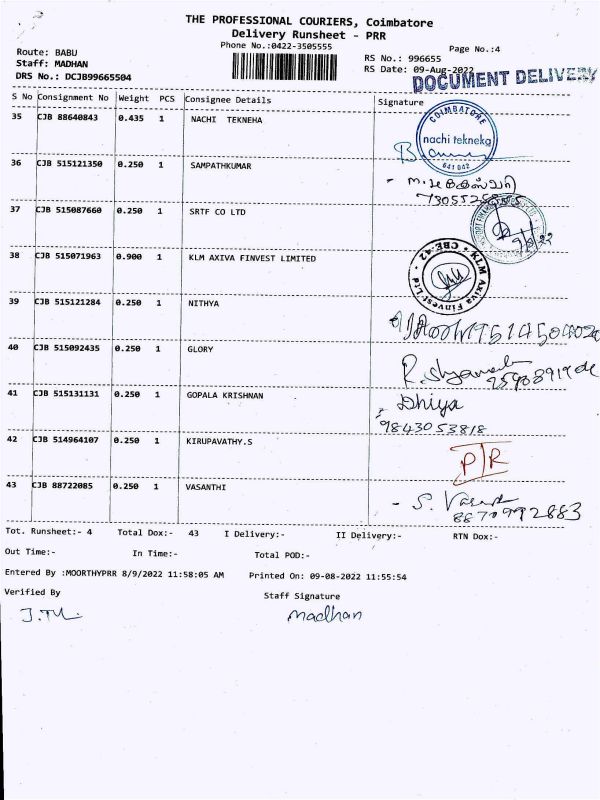 THE PROFESSIONAL COURIERS, Coimbatore
Delivery Runsheet - PRR
Phone No.:0422-3505555
Page No.:4
Route: BABU
Staff: MADHAN
DRS No.: DCJB99665504
RS No.: 996655
RS Date: 09-Aug-2022
DOCUMENT DELIVERY
S No Consignment No Weight PCS Consignee Details Signature
35 CJB 88640843 0.435 1 NACHI TEKNEHA
COIMBATORE
nachi tekneka
641 042
36 CJB 515121350 0.250 1 SAMPATHKUMAR
37 CJB 515087660 0.250 1 SRTF CO LTD
38 CJB 515071963 0.900 1 KLM AXIVA FINVEST LIMITED
KLM Axiva Finvest Ltd CBE-42
39 CJB 515121284 0.250 1 NITHYA
40 CJB 515092435 0.250 1 GLORY
41 CJB 515131131 0.250 1 GOPALA KRISHNAN
Dhiya
9843053818
42 CJB 514964107 0.250 1 KIRUPAVATHY.S
43 CJB 88722085 0.250 1 VASANTHI
Tot. Runsheet:- 4 Total Dox:- 43 I Delivery:- II Delivery:- RTN Dox:-
Out Time:- In Time:- Total POD:-
Entered By :MOORTHYPRR 8/9/2022 11:58:05 AM Printed On: 09-08-2022 11:55:54
Verified By Staff Signature
madhan